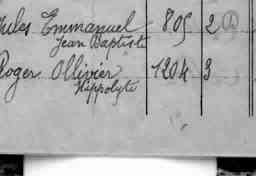 Jules Emmanuel 805 2
Jean Baptiste
Roger Ollivier 1204 3
Hippolyte